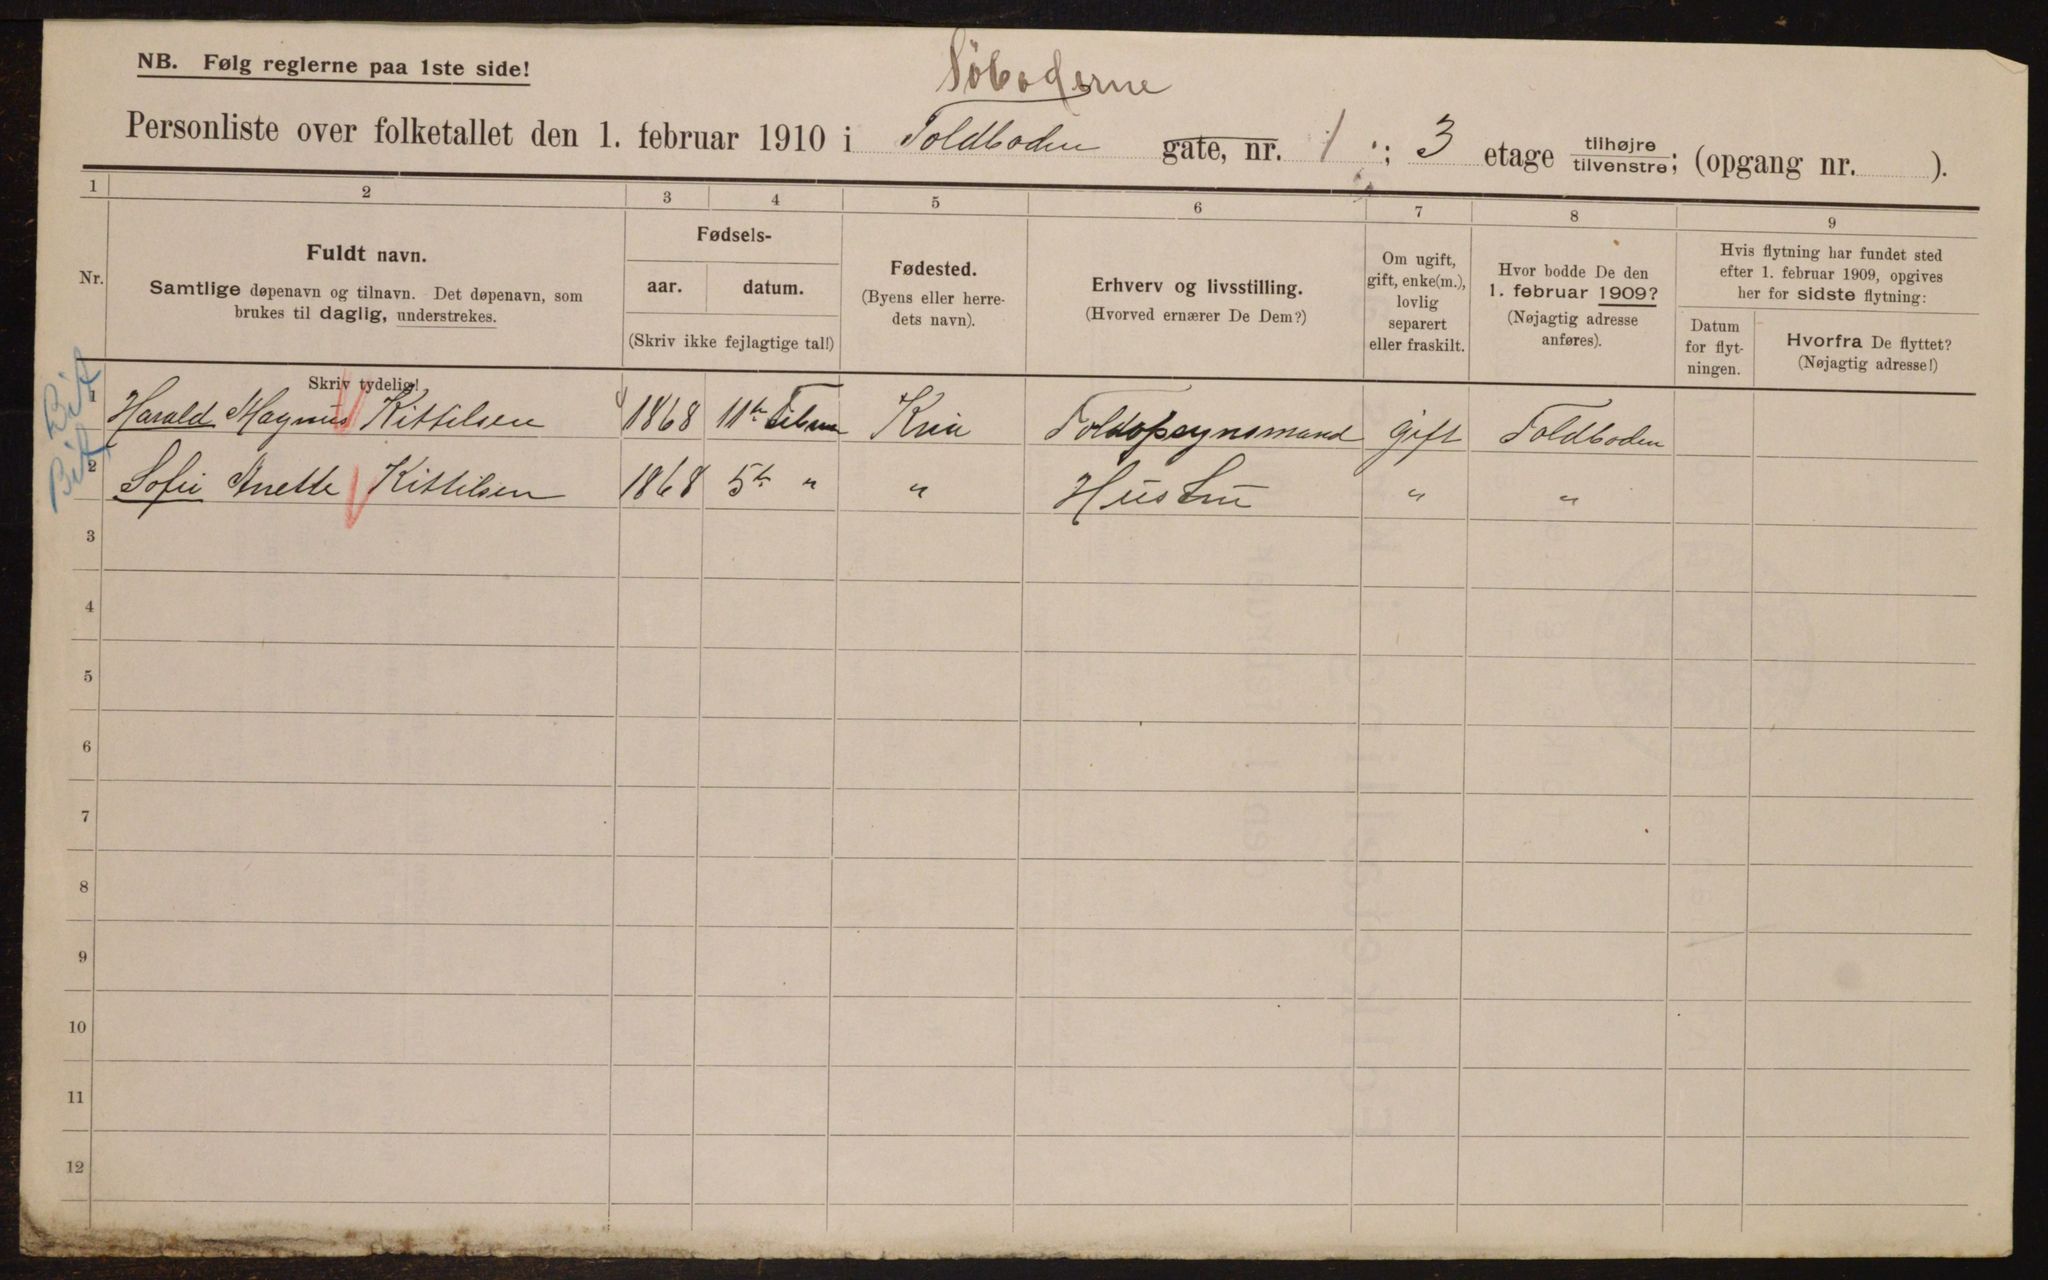 NB. Følg reglerne paa 1ste side!
Söboderne
Personliste over folketallet den 1. februar 1910 i Toldboden gate, nr. 1 ; 3 etage tilhøjre tilvenstre; (opgang nr. ).
1 2 3 4 5 6 7 8 9
Nr.
Fuldt navn.
Samtlige døpenavn og tilnavn. Det døpenavn, som
brukes til daglig, understrekes.
Skriv tydelig!
Fødsels-
aar. datum.
(Skriv ikke fejlagtige tal!)
Fødested.
(Byens eller herre-
dets navn).
Erhverv og livsstilling.
(Hvorved ernærer De Dem?)
Om ugift,
gift, enke(m.),
lovlig
separert
eller fraskilt.
Hvor bodde De den
1. februar 1909?
(Nøjagtig adresse
anføres).
Hvis flytning har fundet sted
efter 1. februar 1909, opgives
her for sidste flytning:
Datum
for flyt-
ningen.
Hvorfra De flyttet?
(Nøjagtig adresse!)
1 Harald Magnus Kittilsen 1868 11te Kria Toldopsynsmand gift Toldboden
2 Sofie Anette Kittilsen 1868 5te " " Hustru " "
3
4
5
6
7
8
9
10
11
12